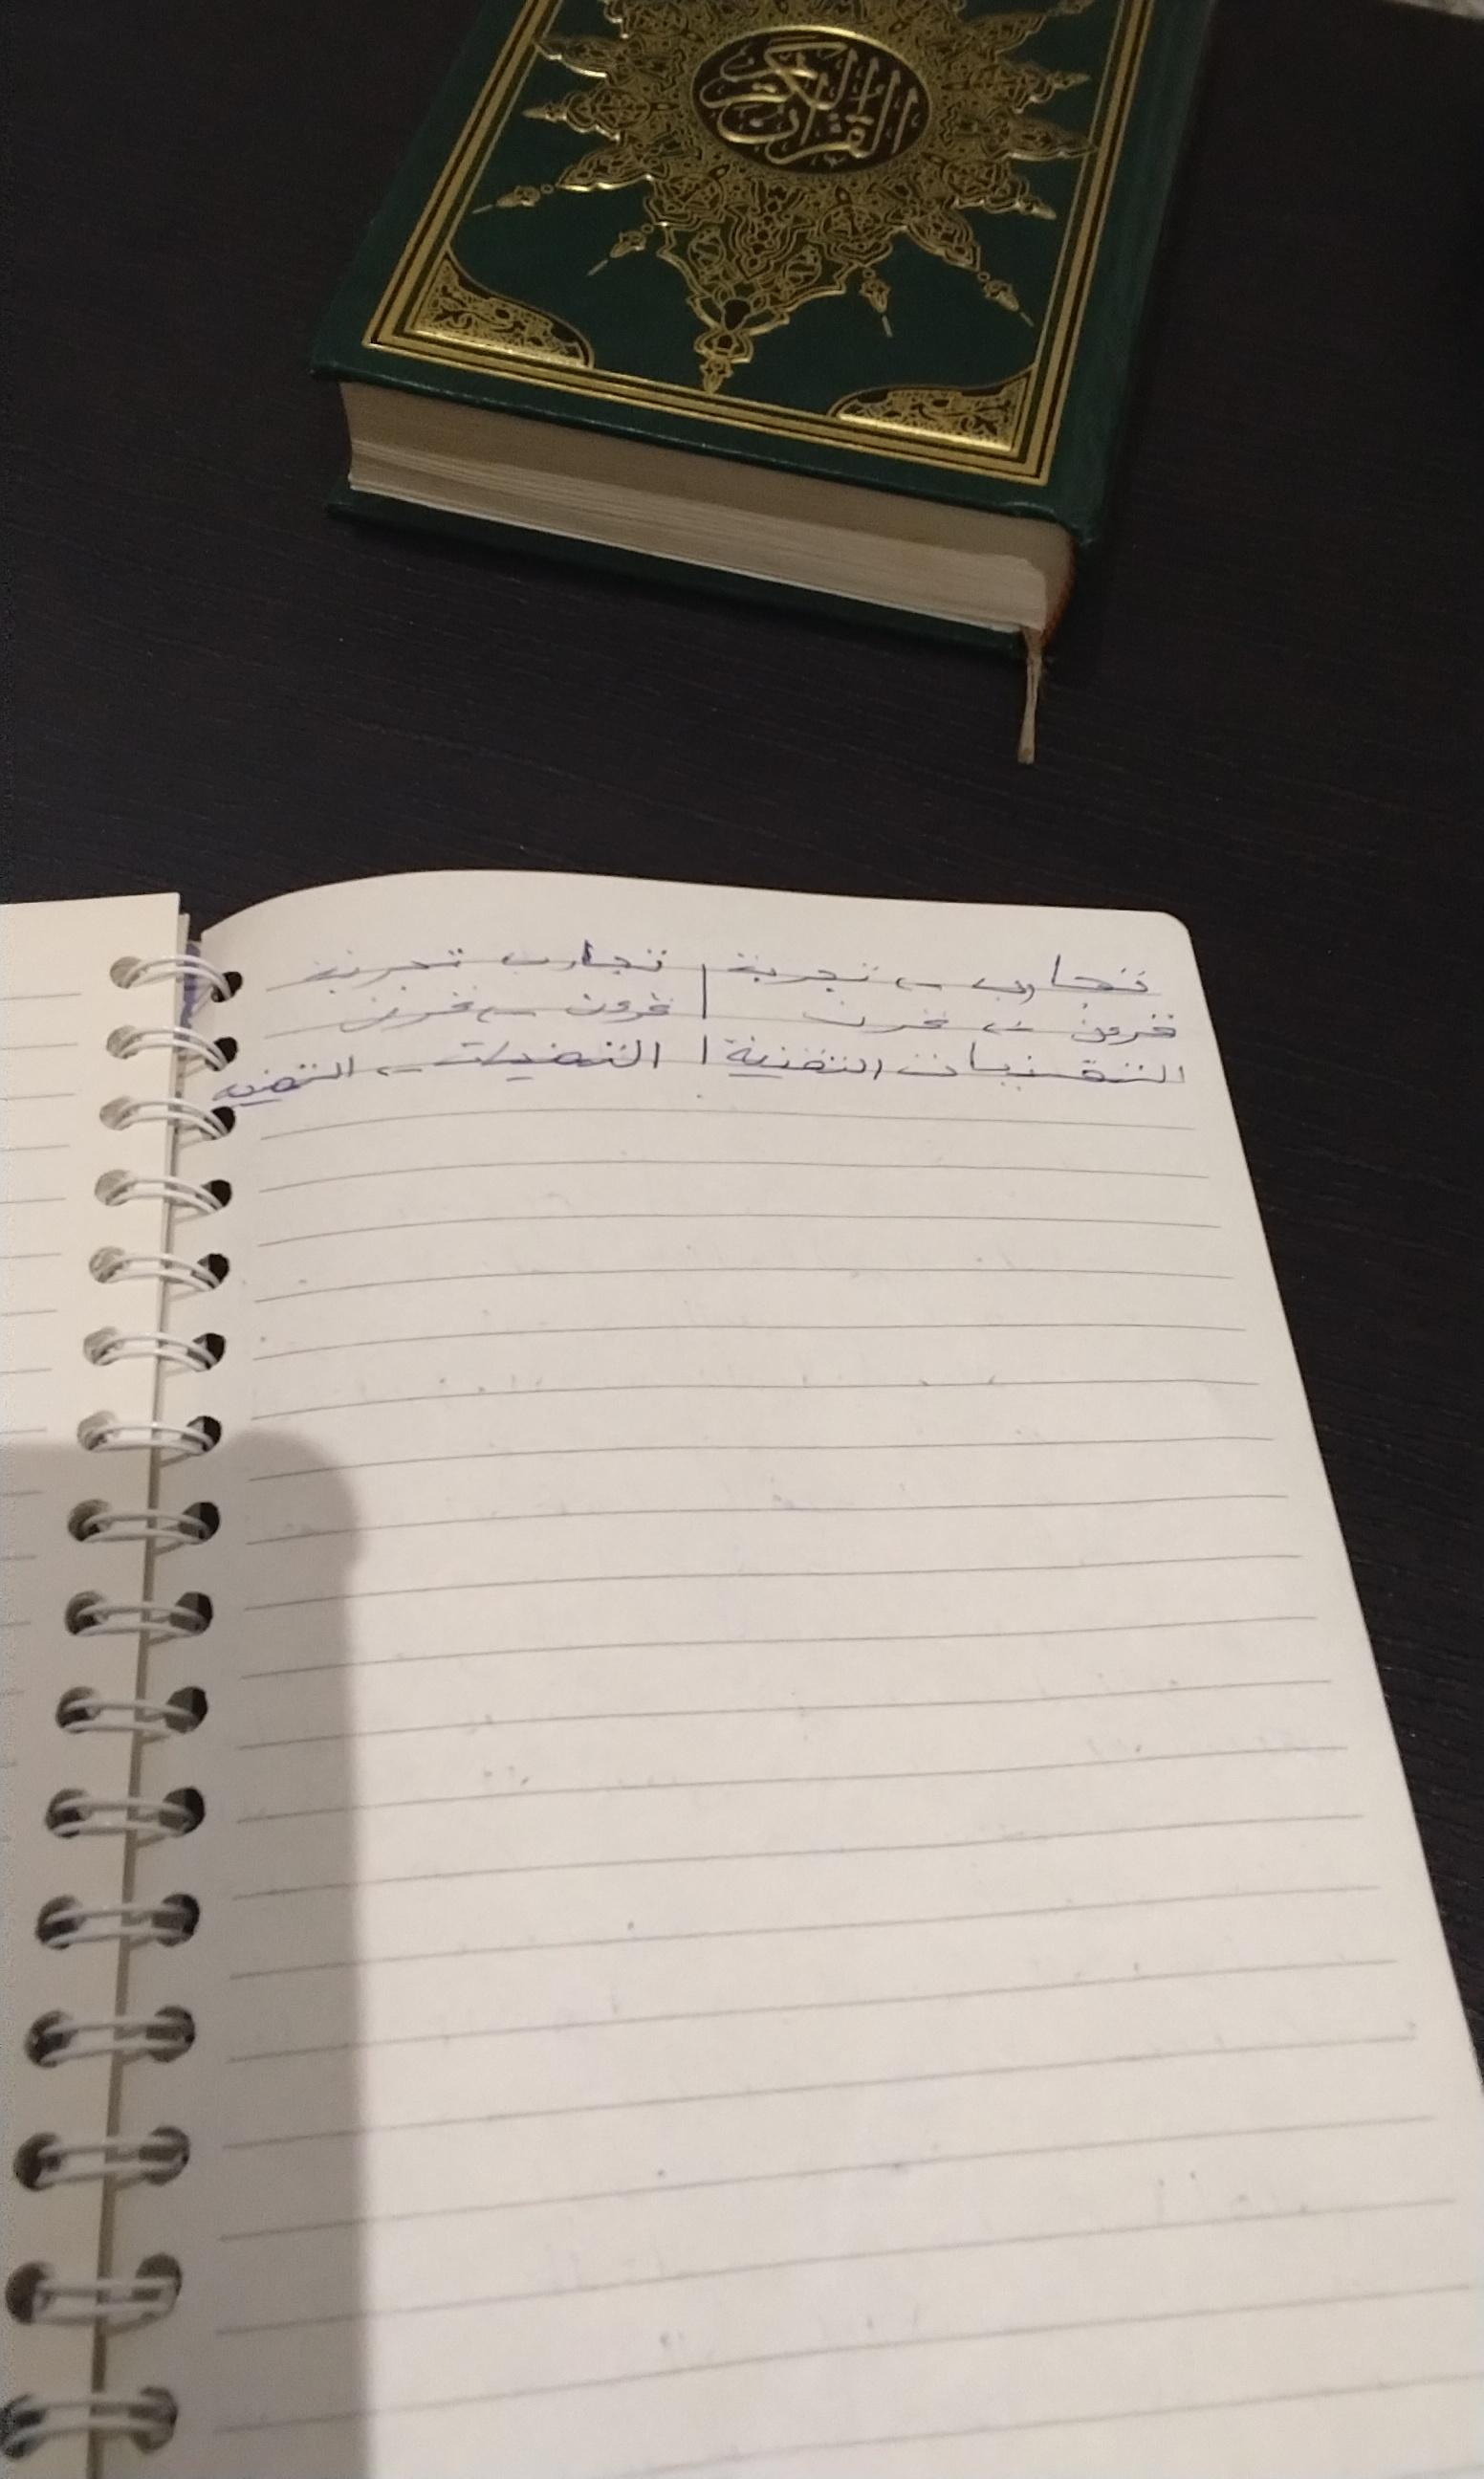 القرآن الكريم
تجارب ← تجربة | تجارب تجربة
قرون ← قرن | قرون ← قرن
التقنيات التقنية | التقنيات ← التقنية